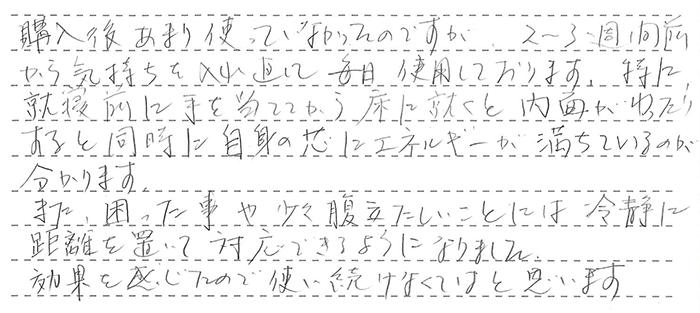 購入後あまり使っていなかったのですが、2〜3週間前
から気持ちを入れ直して毎日使用しております。特に
就寝前に手を当ててから床に就くと内面がゆったり
すると同時に自身の芯にエネルギーが満ちているのが
分かります。
また、困った事や少々腹立たしいことには冷静に
距離を置いて対応できるようになりました。
効果を感じたので使い続けなくてはと思います